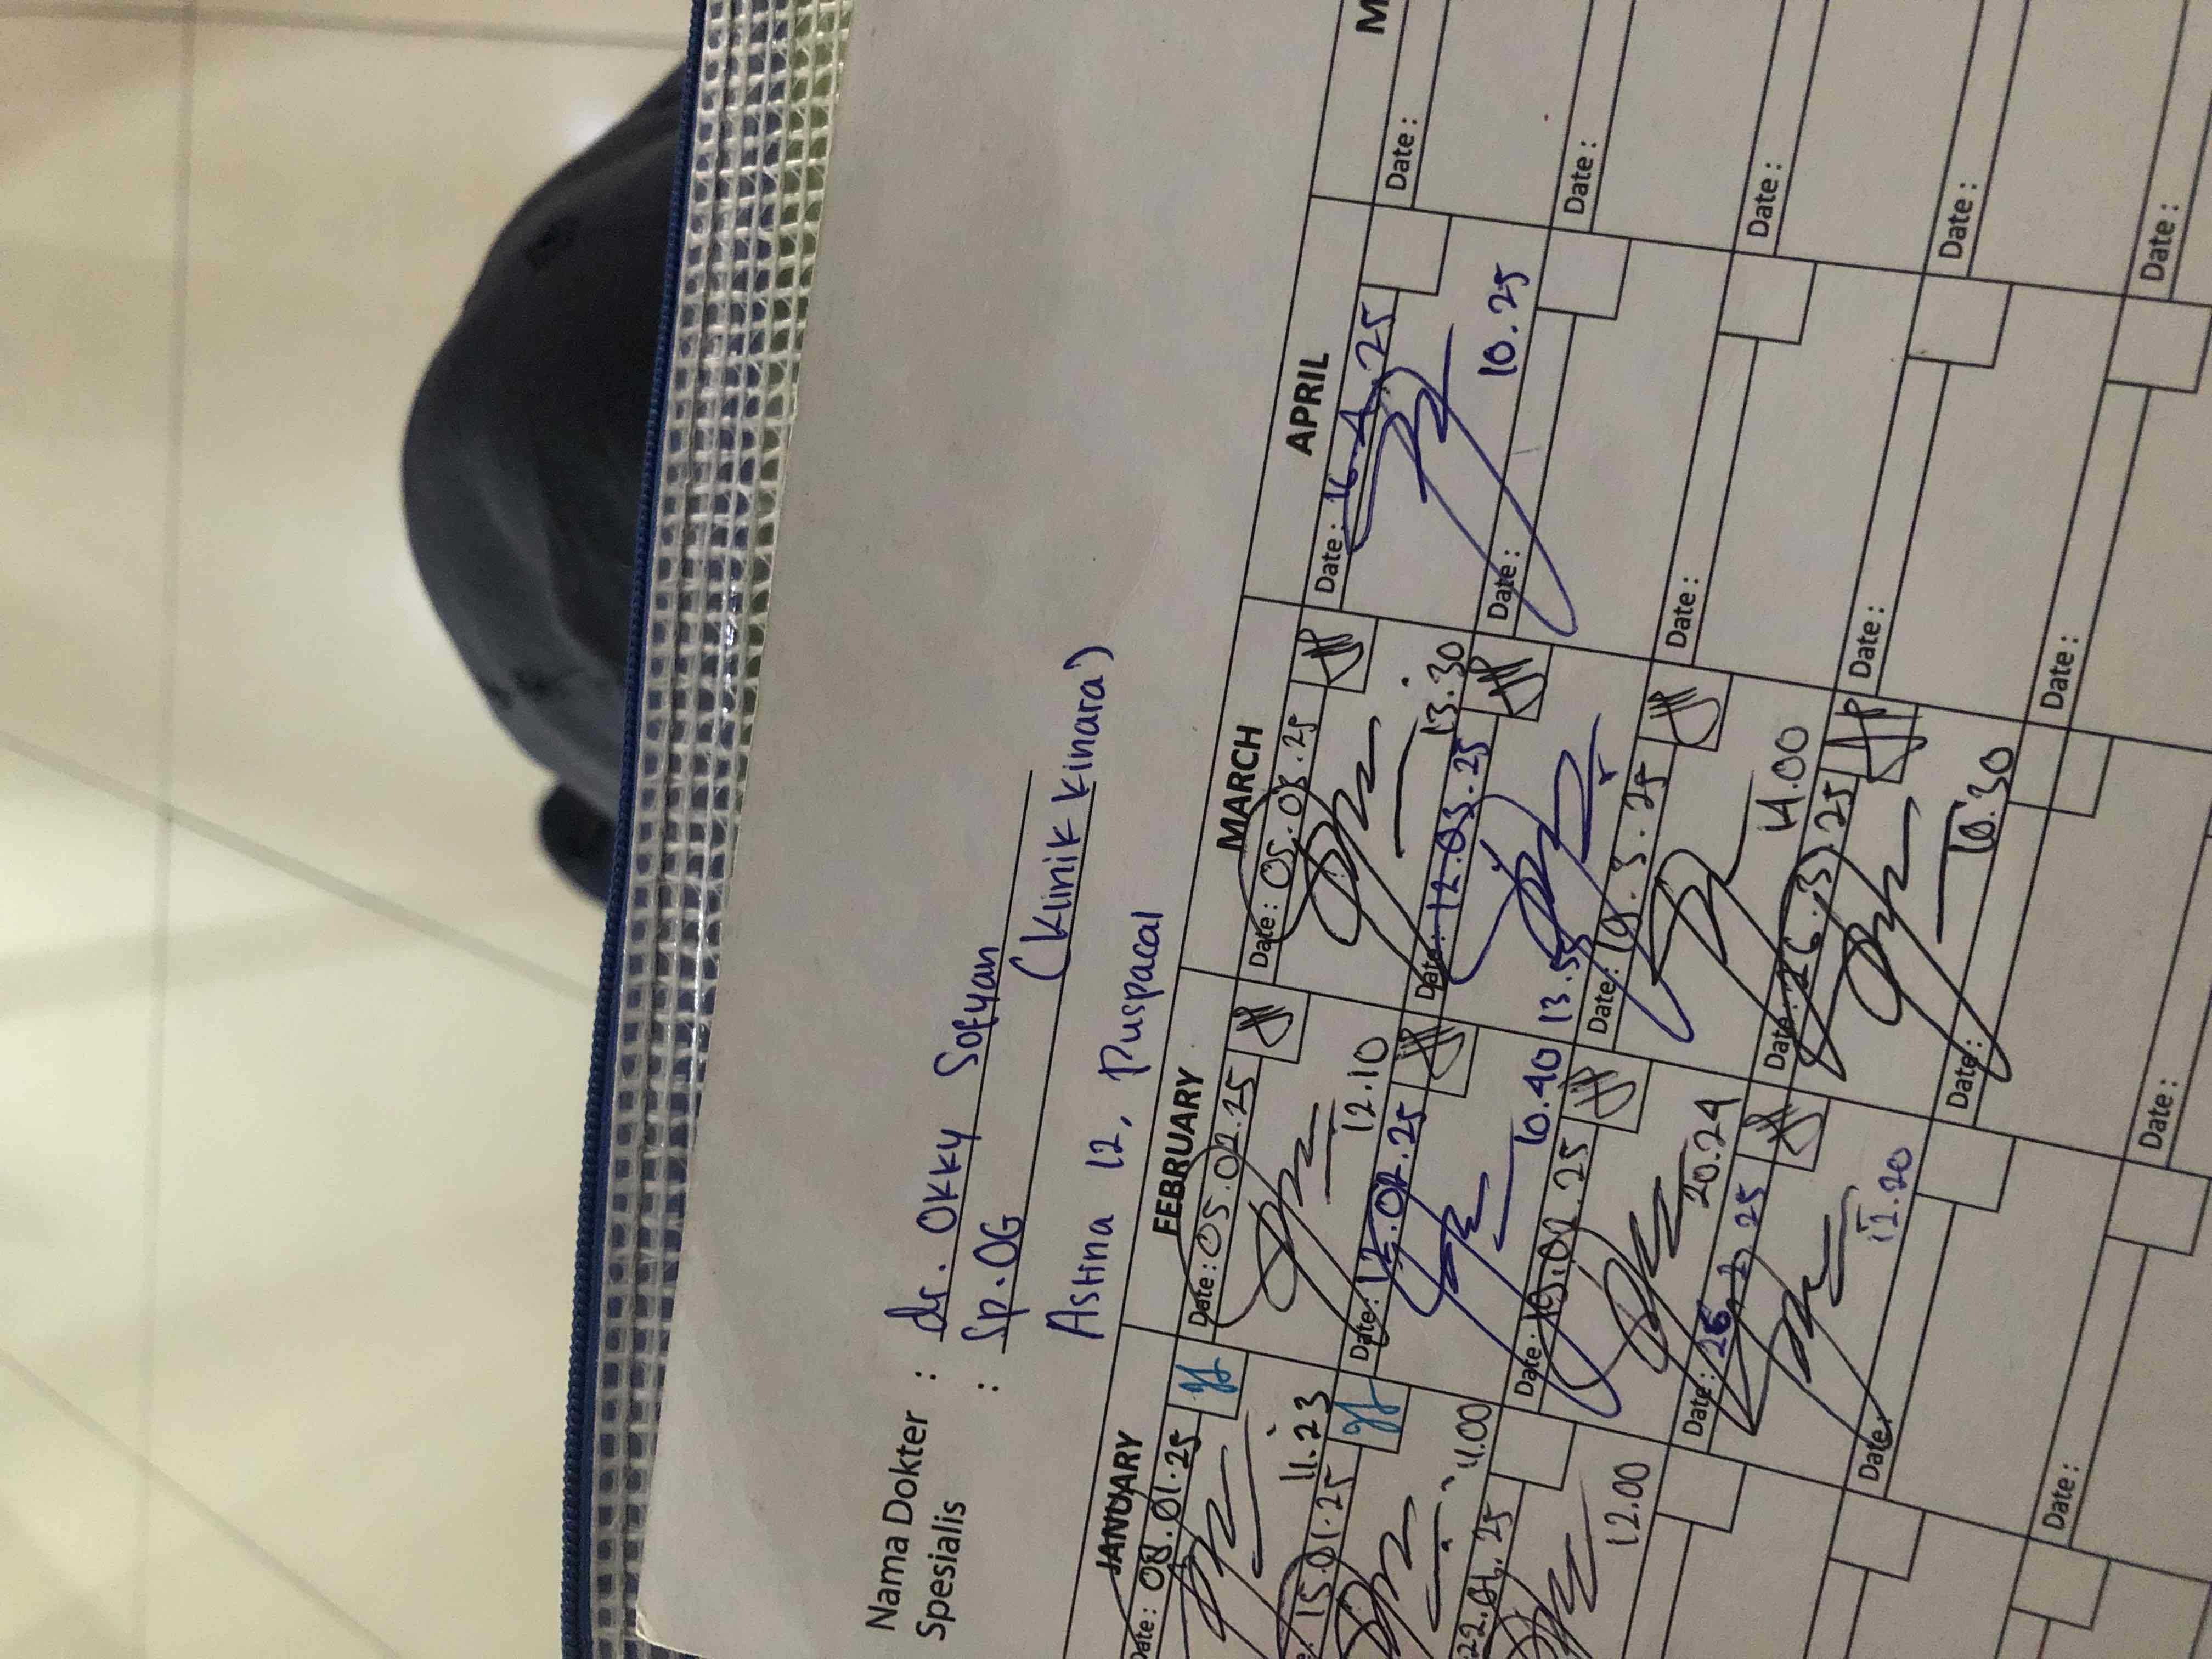 Nama Dokter : dr. Okky Sofyan
Spesialis : Sp.OG (Klinik Kinara)
Astina 12, Puspacal
JANUARY FEBRUARY MARCH APRIL M
Date: 08.01.25 Date: 05.02.25 Date: 05.03.25 Date: 16.4.25 Date:
11.23 12.10 13.30 10.25
15.01.25 Date: 12.02.25 Date: 12.03.25 Date: Date:
11.00 10.40 13.55
22.01.25 Date: 19.02.25 Date: 19.3.25 Date: Date:
12.00 20.24 11.00
Date: 26.2.25 Date: 26.3.25 Date: Date:
11.20 10.30
Date: Date: Date: Date:
Date: Date: